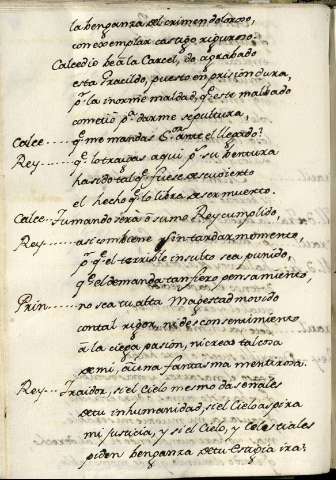 la benganza del crimen doloroso,
con exemplar castigo riguroso.
Calcedio be a la Carcel, do agrabado
esta Gracildo, puesto en prision dura,
pᵃ la inorme maldad, qᵉ este malbado
cometio pᵃ darme sepultura,
Calce ...... qᵉ me mandas Sᵒʳ ante el llegado?
Rey ....... qᵉ lo traigas aqui pʳ su bentura
ha sido tal qᵉ fuese descubierto
el hecho qᵉ lo libra de ser muerto.
Calce. Tu mando sera o sumo Rey cumplido,
Rey ...... asi combiene sin tardar momento,
pʳ qᵉ el terrible insulto sea punido,
qᵉ el demanda tan fiero pensamiento
Prin ...... no sea tu alta Magestad movido
con tal rigor, ni des consentimiento
a la ciega pasion, ni creas tal cosa
de mi, a una fantasma mentirosa.
Rey ... Traidor, si el Cielo mesmo da señales
de tu inhumanidad, si el Cielo aspira
mi justicia, y si el Cielo, y Celestiales
piden benganza de tu Estigia ira?